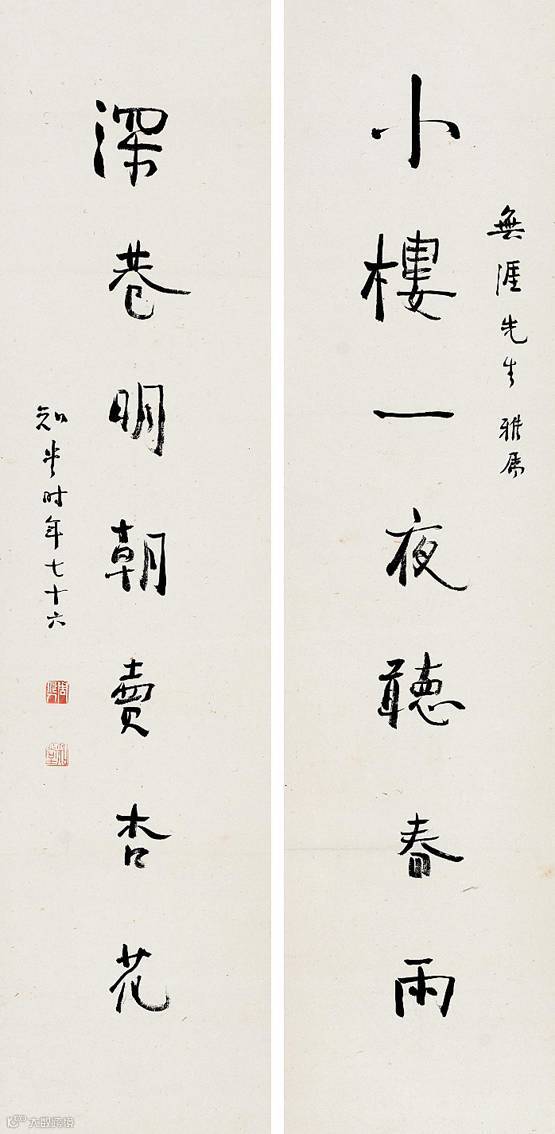 無涯先生雅属
小樓一夜聽春雨
深巷明朝賣杏花
知半时年七十六